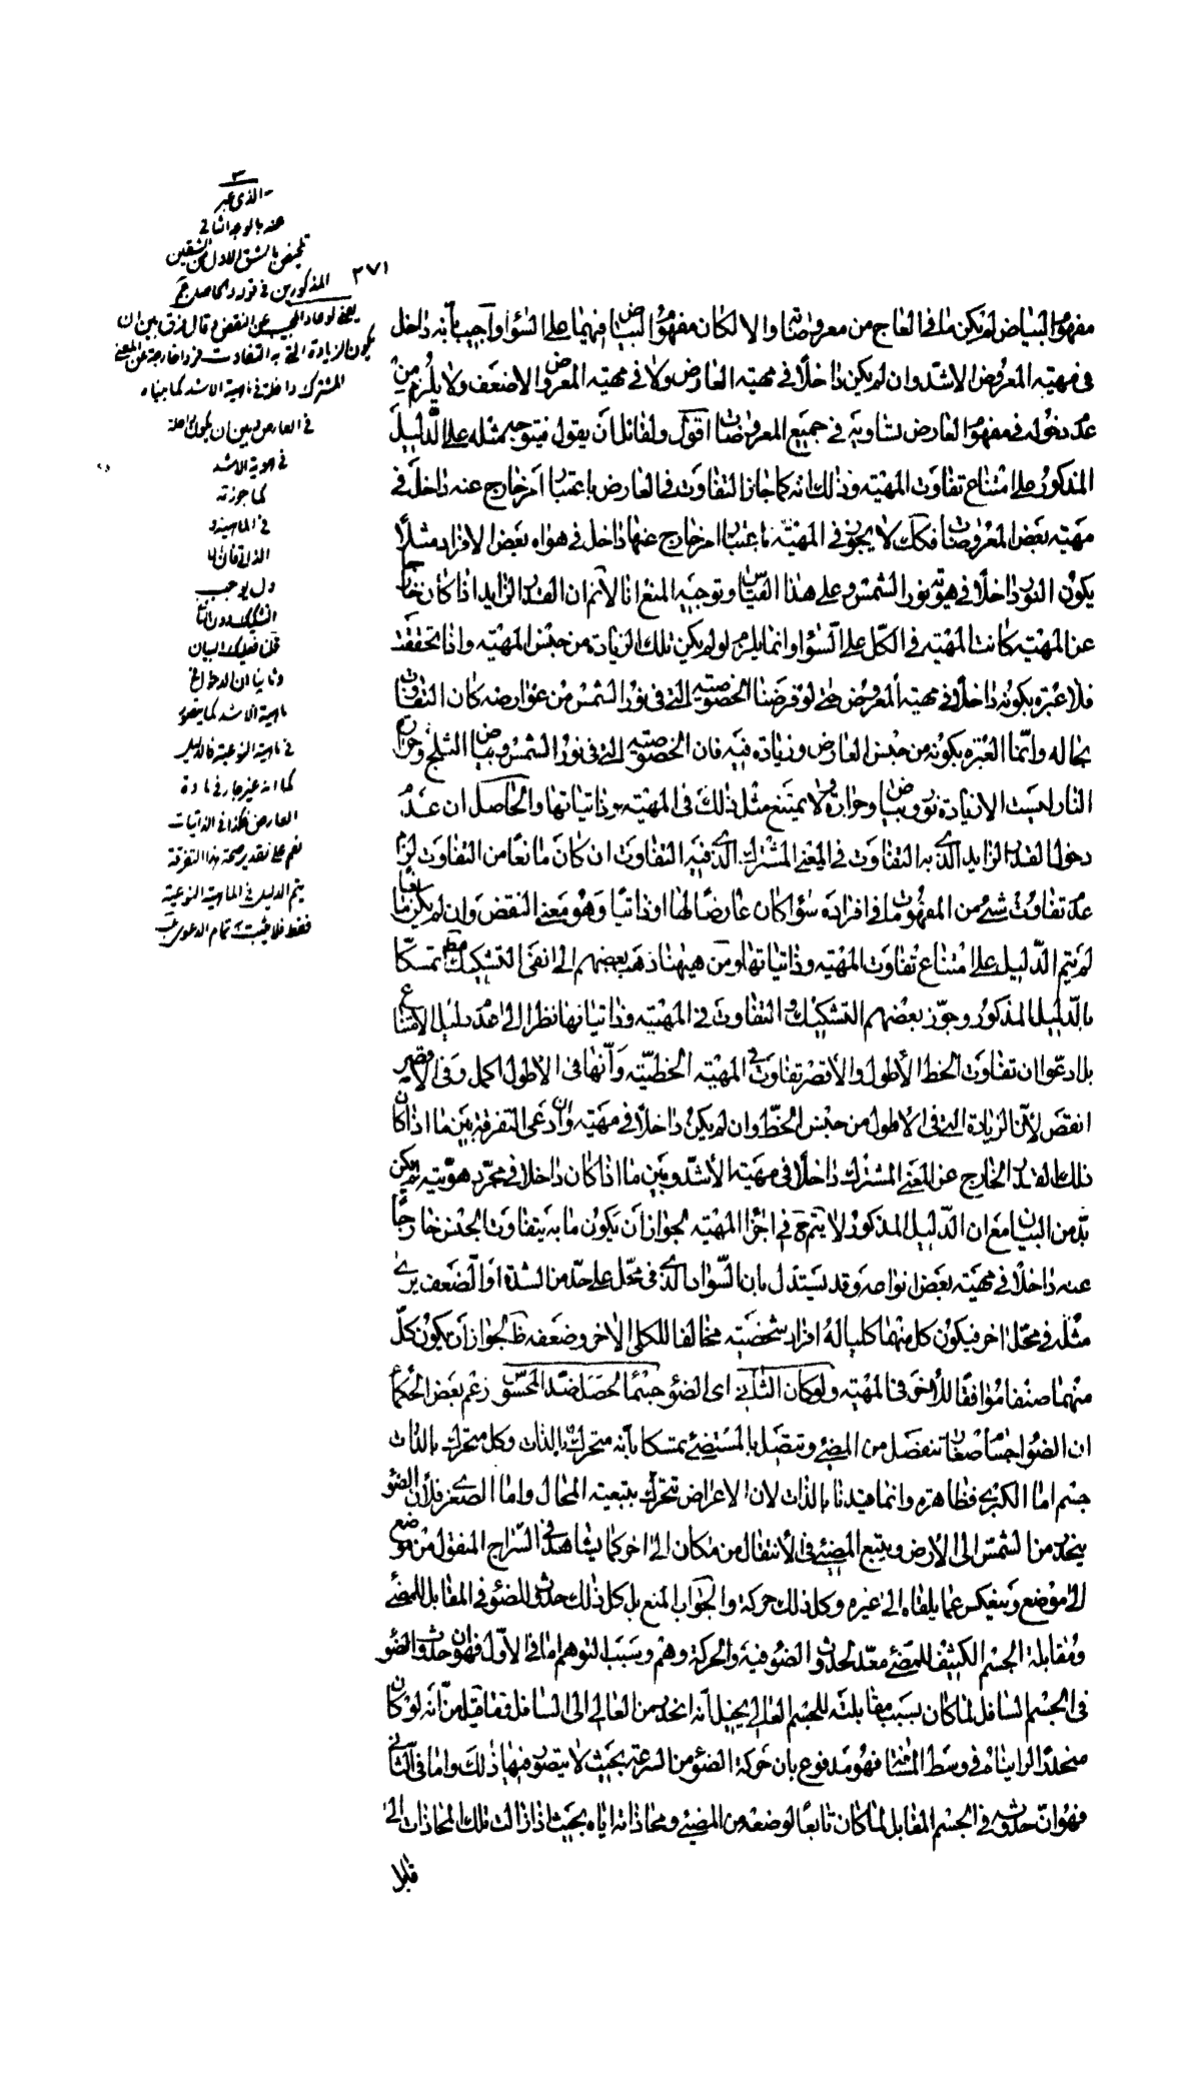 ٢٧١
مفهوم البياض لم يكن ما فى العاج من معروضاته والا لكان مفهوم البياض فيهما على السواء واجيب بأنه داخل
فى مهيته المعروض الاشد وان لم يكن داخلًا فى مهيته العارض ولا فى مهيته المعروض الاضعف ولا يلزم من
عدم دخوله فى مفهوم العارض تساويه فى جميع المعروضات اقول ولقائل أن يقول فيتوجه مثله على الدليل
المذكور على امتناع تفاوت المهيته وذلك انه كما جاز التفاوت فى العارض باعتبار امر خارج عنه داخل فى
مهيته بعض المعروضات فكك لا يجوز فى المهيته باعتبار امر خارج عنها داخل فى هواه بعض الافراد مثلًا
يكون النور داخلًا فى هويته نور الشمس وعلى هذا القياس وتوجيه المنع انا لا نم ان القدر الزايد اذا كان خارجا
عن المهيته كانت المهيته فى الكل على السواء وانما يلزم لو لم يكن تلك الزيادة من جنس المهيته واذا تحققت
فلا عبرة بكونه داخلًا فى مهيته المعروض حتى لو فرضنا الخصوصيته التى فى نور الشمس من عوارضه كان التفاوت
بحاله وانما العبرة بكونه من جنس العارض وزيادة فيه فان الخصوصيته التى فى نور الشمس وبياض الثلج وحرارة
النار ليست الا زيادة نور وبياض وحرارة ولا يمتنع مثل ذلك فى المهيته وذاتياتها والحاصل ان عدم
دخول القدر الزايد الذى به التفاوت فى المعنى المشترك الذى فيه التفاوت ان كان مانعًا من التفاوت لزم
عدم تفاوت شئ من المفهومات فى افراده سواء كان عارضًا لها او ذاتيًا وهو معنى النقض وان لم يكن مانعا
لم يتم الدليل على امتناع تفاوت المهيته وذاتياتها ومن هيهنا ذهب بعضهم الى نفى التشكيك مط تمسكًا
بالدليل المذكور وجوّز بعضهم التشكيك والتفاوت فى المهيته وذاتياتها نظرا الى عدم دليل الامتناع
بل ادعوا ان تفاوت الخط الأطول والأقصر تفاوت فى المهيته الخطيّته وأنها فى الاطول اكمل وفى الاقصر
انقص لأن الزيادة التى فى الاطول من جنس الخط وان لم يكن داخلًا فى مهيته وان ادعى التفرقة بين ما اذا كان
ذلك القدر الخارج عن المعنى المشترك داخلًا فى مهيته الأشد وبين ما اذا كان داخلا فى مجرّد هويته لم يكن
بدّ من البيان مع ان الدليل المذكور لا يتم ح فى اجزاء المهيته لجواز أن يكون ما به يتفاوت الجنس خارجًا
عنه داخلًا فى مهيته بعض انواعه وقد يستدل بان السواد الذى فى محل على حد من الشدة او الضعف يرى
مثله فى محل اخر فيكون كل منهما كليا له افراد شخصيته مخالفا للكلى الاخر وضعفه ظ لجواز أن يكون كلّ
منهما صنفا موافقًا للأخر فى المهيته ولو كان الثانى اى الضوء جسمًا لحصل ضد المحسوس زعم بعض الحكماء
ان الضوء اجسام صغار تنفصل من المضئ وتتصل بالمستضئ تمسكا بأنه متحرك بالذات وكل متحرك بالذات
جسم اما الكبرى فظاهرة وانما قيدنا بالذات لان الاعراض تتحرك بتبعيته المحال واما الصغرى فلأن الضوء
ينحدر من الشمس الى الأرض ويتبع المضئ فى الأنتقال من مكان الى اخر كما يشاهد فى السراج المنقول من موضع
الى موضع وينعكس عما يلقاه الى غيره وكل ذلك حركة والجواب المنع بل كل ذلك حدوث للضوء فى المقابل للمضئ
ومقابلة الجسم الكثيف للمضئ معد لحدوث الضوء فيه والحركة وهم وسبب التوهم اما فى الاول فهو ان حدوث الضوء
فى الجسم السافل لما كان بسبب مقابلته للجسم العالى يخيل أنه انحدر من العالى الى السافل فما قيل من أنه لو كان
منحدرًا لرايناه فى وسط المسافة فهو مدفوع بان حركة الضوء من السرعة بحيث لا يتصور فيها ذلك واما فى الثانى
فهو ان حدوثه فى الجسم المقابل لما كان تابعًا لوضعه من المضئ ومحاذاته اياه بحيث اذا زالت تلك المحاذات الى
قابل
٣
الذى عبر
عنه بالوجه الثانى
بالشق الاول من الشقين
المذكورين فى
يعنى لو عاد المجيب عن النقض وقال فرق بين ان
يكون الزيادة التى به التفاوت خارجة عن المعنى
المشترك داخلة فى ماهية الاشد كما بيناه
فى العارض وبين ان يكون داخلة
فى هوية الاشد
كما جوزته
فى الماهية
قلنا فعليك البيان
وثانيا ان الدخول فى
ماهية الاشد كما يتصور
فى ماهية النوعية فالدليل
كما انه غير جار فى مادة
العارض فكذا فى الذاتيات
نعم على تقدير صحة هذا التفرقة
يتم الدليل فى الماهية النوعية
فقط فلا يثبت تمام الدعوى